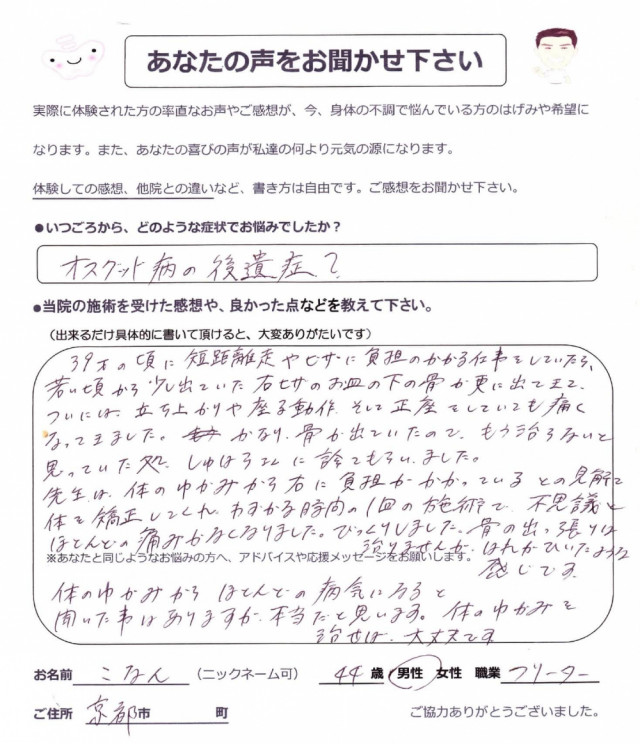 あなたの声をお聞かせ下さい
実際に体験された方の率直なお声やご感想が、今、身体の不調で悩んでいる方のはげみや希望に
なります。また、あなたの喜びの声が私達の何より元気の源になります。
体験しての感想、他院との違いなど、書き方は自由です。ご感想をお聞かせ下さい。
●いつごろから、どのような症状でお悩みでしたか？
オスグット病の後遺症？
●当院の施術を受けた感想や、良かった点などを教えて下さい。
（出来るだけ具体的に書いて頂けると、大変ありがたいです）
39才の頃に短距離走やヒザに負担のかかる仕事をしていたら、
若い頃から少し出ていた右ヒザのお皿の下の骨が更に出て来て、
ついには、立ち上がりや座る動作、そして正座をしていても痛く
なってきました。かなり、骨が出ていたので、もう治らないと
思っていた処、しゅはらさんに診てもらいました。
先生は、体のゆがみから右に負担がかかっているとの見解で
体を矯正してくれ、わずかな時間の1回の施術で、不思議と
ほとんどの痛みがなくなりました。びっくりしました。骨の出っ張りは
治りませんが、はれがひいたような
感じです。
※あなたと同じようなお悩みの方へ、アドバイスや応援メッセージをお願いします。
体のゆがみから ほとんどの病気になると
聞いた事はありますが、本当だと思います。体のゆがみを
治せば、大丈夫です
お名前 こなん （ニックネーム可） 44 歳 男性 女性 職業 フリーター
ご住所 京都市 町 ご協力ありがとうございました。